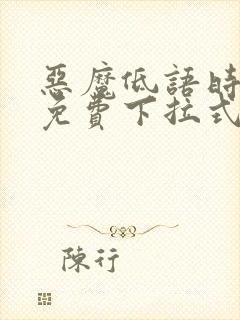 惡魔低語時
免費下拉式
陳行